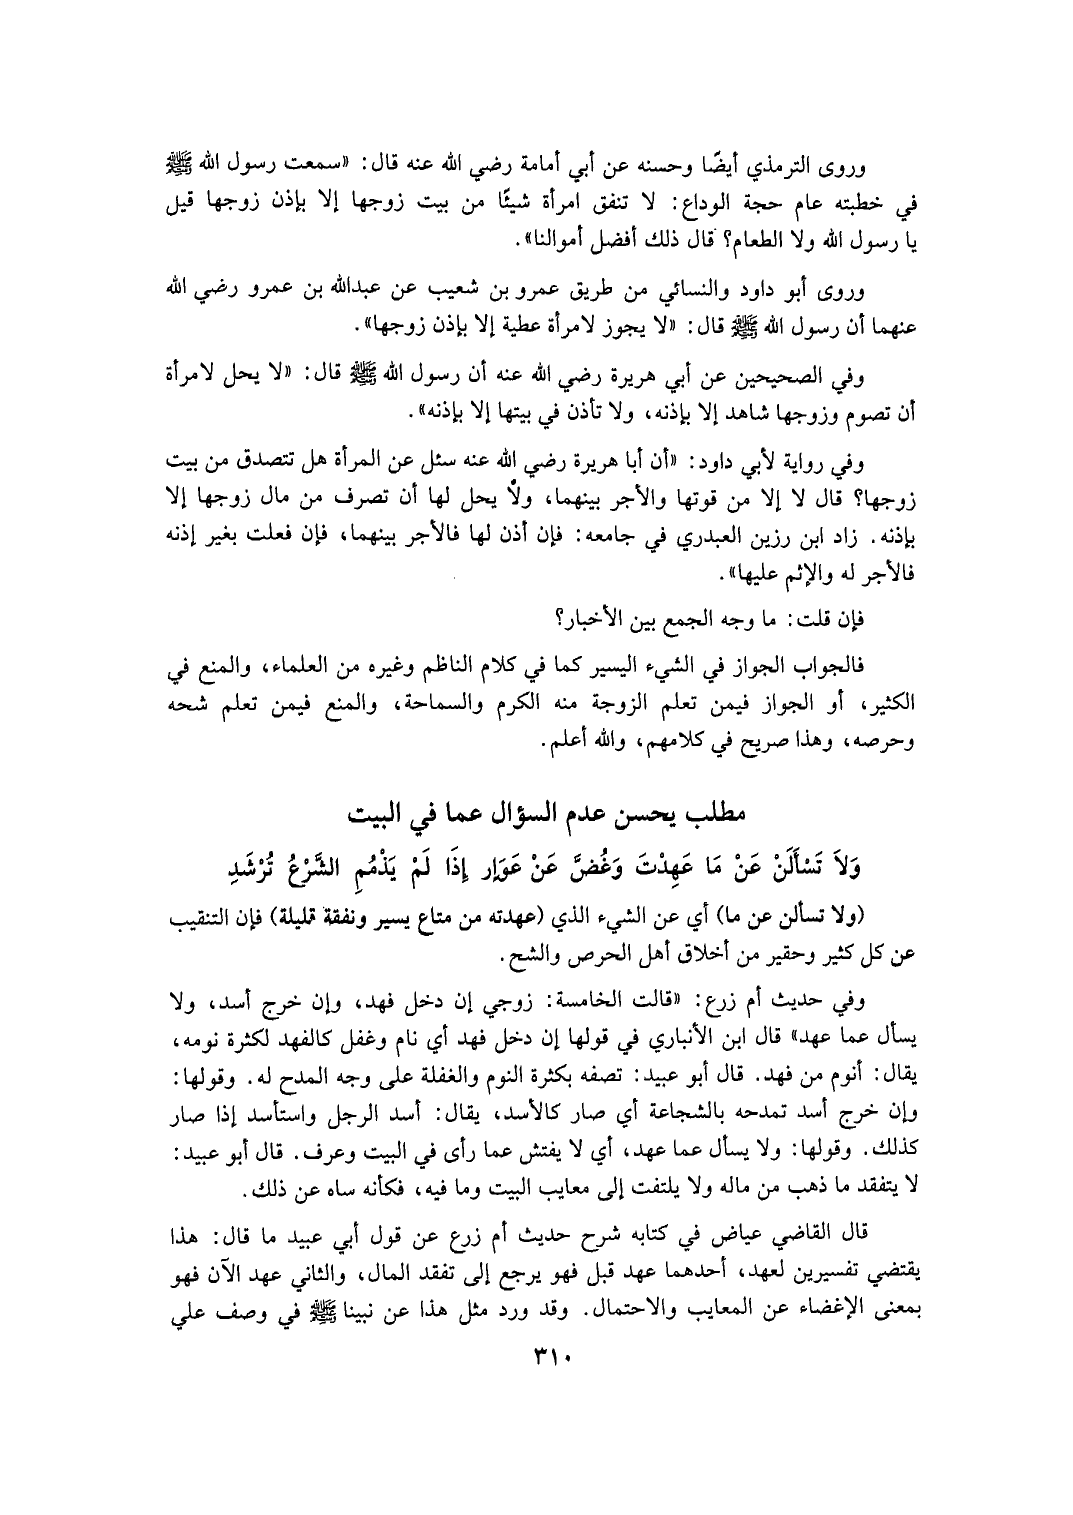 وروى الترمذي أيضًا وحسنه عن أبي أمامة رضي الله عنه قال: «سمعت رسول الله ﷺ
في خطبته عام حجة الوداع: لا تنفق امرأة شيئًا من بيت زوجها إلا بإذن زوجها قيل
يا رسول الله ولا الطعام؟ قال ذلك أفضل أموالنا».
وروى أبو داود والنسائي من طريق عمرو بن شعيب عن عبدالله بن عمرو رضي الله
عنهما أن رسول الله ﷺ قال: «لا يجوز لامرأة عطية إلا بإذن زوجها».
وفي الصحيحين عن أبي هريرة رضي الله عنه أن رسول الله ﷺ قال: «لا يحل لامرأة
أن تصوم وزوجها شاهد إلا بإذنه، ولا تأذن في بيتها إلا بإذنه».
وفي رواية لأبي داود: «أن أبا هريرة رضي الله عنه سئل عن المرأة هل تتصدق من بيت
زوجها؟ قال لا إلا من قوتها والأجر بينهما، ولا يحل لها أن تصرف من مال زوجها إلا
بإذنه. زاد ابن رزين العبدري في جامعه: فإن أذن لها فالأجر بينهما، فإن فعلت بغير إذنه
فالأجر له والإثم عليها».
فإن قلت: ما وجه الجمع بين الأخبار؟
فالجواب الجواز في الشيء اليسير كما في كلام الناظم وغيره من العلماء، والمنع في
الكثير، أو الجواز فيمن تعلم الزوجة منه الكرم والسماحة، والمنع فيمن تعلم شحه
وحرصه، وهذا صريح في كلامهم، والله أعلم.
مطلب يحسن عدم السؤال عما في البيت
وَلاَ تَسْأَلَنْ عَنْ مَا عَهِدْتَ وَغُضَّ عَنْ عَوَارٍ إِذَا لَمْ يَذْمُمِ الشَّرْعُ تُرْشَدِ
(ولا تسألن عن ما) أي عن الشيء الذي (عهدته من متاع يسير ونفقة قليلة) فإن التنقيب
عن كل كثير وحقير من أخلاق أهل الحرص والشح.
وفي حديث أم زرع: «قالت الخامسة: زوجي إن دخل فهد، وإن خرج أسد، ولا
يسأل عما عهد» قال ابن الأنباري في قولها إن دخل فهد أي نام وغفل كالفهد لكثرة نومه،
يقال: أنوم من فهد. قال أبو عبيد: تصفه بكثرة النوم والغفلة على وجه المدح له. وقولها:
وإن خرج أسد تمدحه بالشجاعة أي صار كالأسد، يقال: أسد الرجل واستأسد إذا صار
كذلك. وقولها: ولا يسأل عما عهد، أي لا يفتش عما رأى في البيت وعرف. قال أبو عبيد:
لا يتفقد ما ذهب من ماله ولا يلتفت إلى معايب البيت وما فيه، فكأنه ساه عن ذلك.
قال القاضي عياض في كتابه شرح حديث أم زرع عن قول أبي عبيد ما قال: هذا
يقتضي تفسيرين لعهد، أحدهما عهد قبل فهو يرجع إلى تفقد المال، والثاني عهد الآن فهو
بمعنى الإغضاء عن المعايب والاحتمال. وقد ورد مثل هذا عن نبينا ﷺ في وصف علي
٣١٠